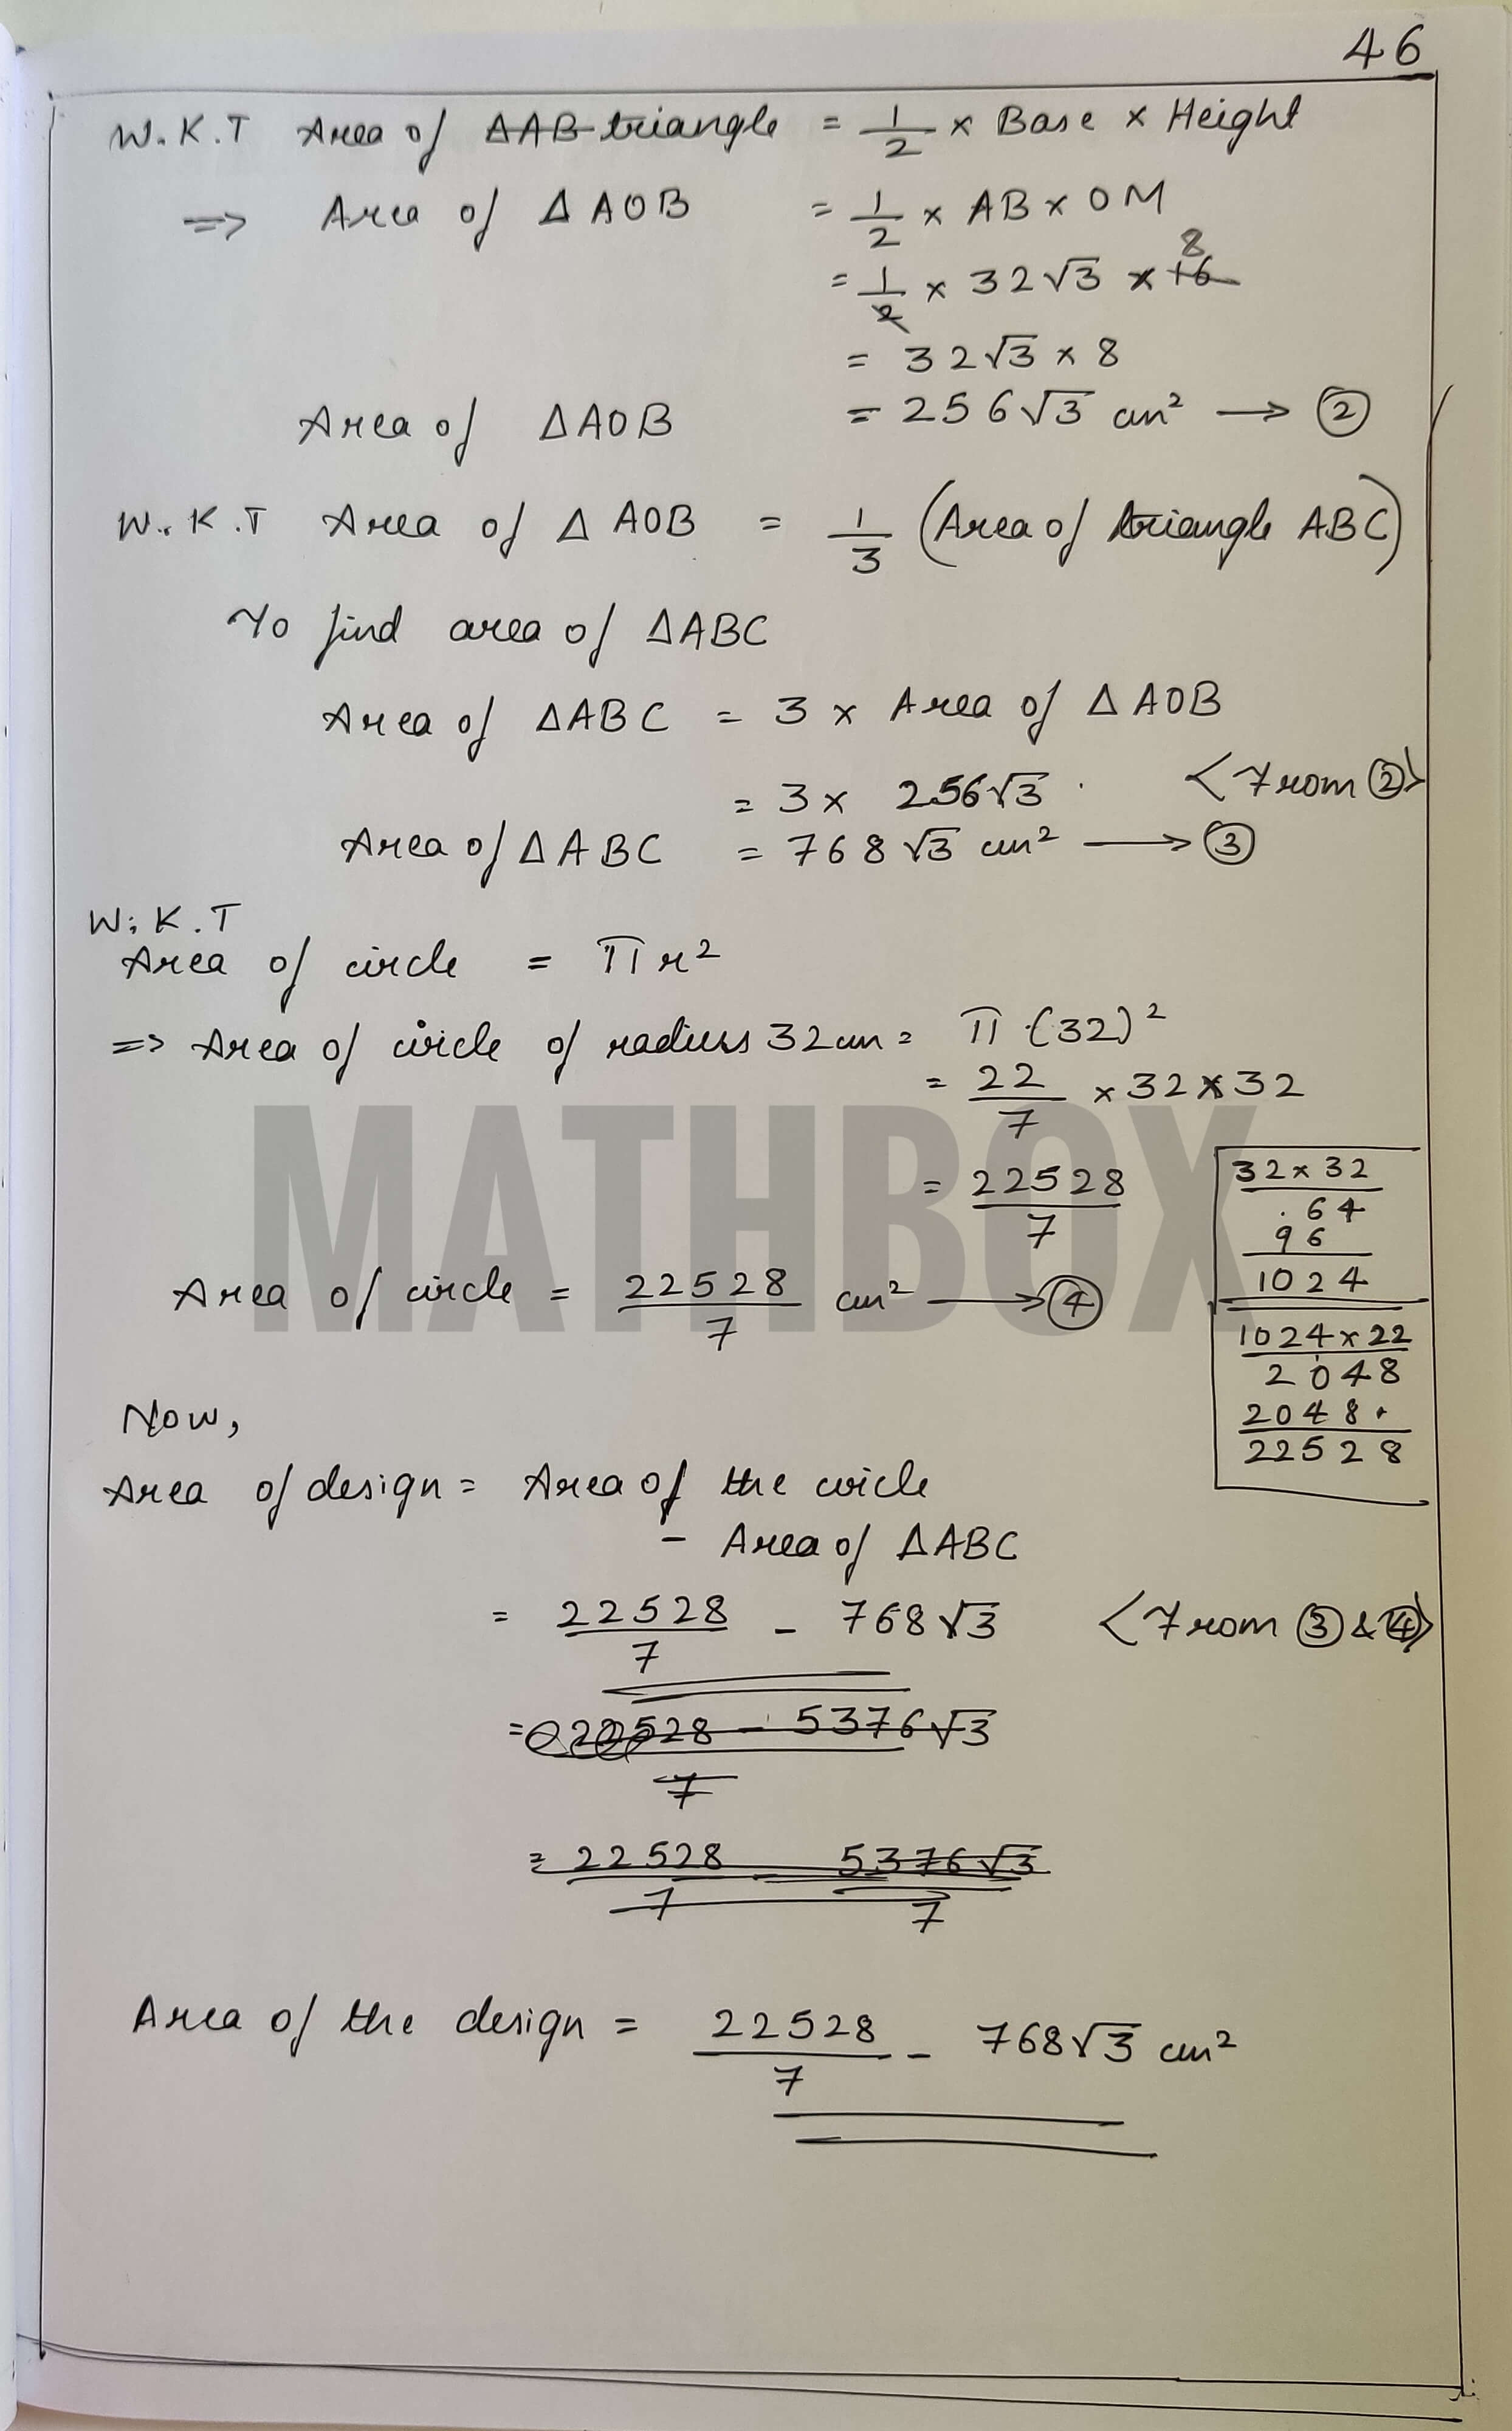 46
W.K.T Area of ΔAB triangle = 1/2 × Base × Height
=> Area of ΔAOB = 1/2 × AB × OM
= 1/2 × 32√3 × 16 8
= 32√3 × 8
Area of ΔAOB = 256√3 cm² → ②
W.K.T Area of ΔAOB = 1/3 (Area of triangle ABC)
To find area of ΔABC
Area of ΔABC = 3 × Area of ΔAOB
= 3 × 256√3 <From ②>
Area of ΔABC = 768√3 cm² → ③
W.K.T
Area of circle = πr²
=> Area of circle of radius 32cm = π(32)²
= 22/7 × 32 × 32
= 22528/7
Area of circle = 22528/7 cm² → ④
32 × 32
64
96
1024
1024 × 22
2048
2048
22528
MATHBOX
Now,
Area of design = Area of the circle
- Area of ΔABC
= 22528/7 - 768√3 <From ③ & ④>
= 22528 - 5376√3 / 7
= 22528/7 - 5376√3/7
Area of the design = 22528/7 - 768√3 cm²